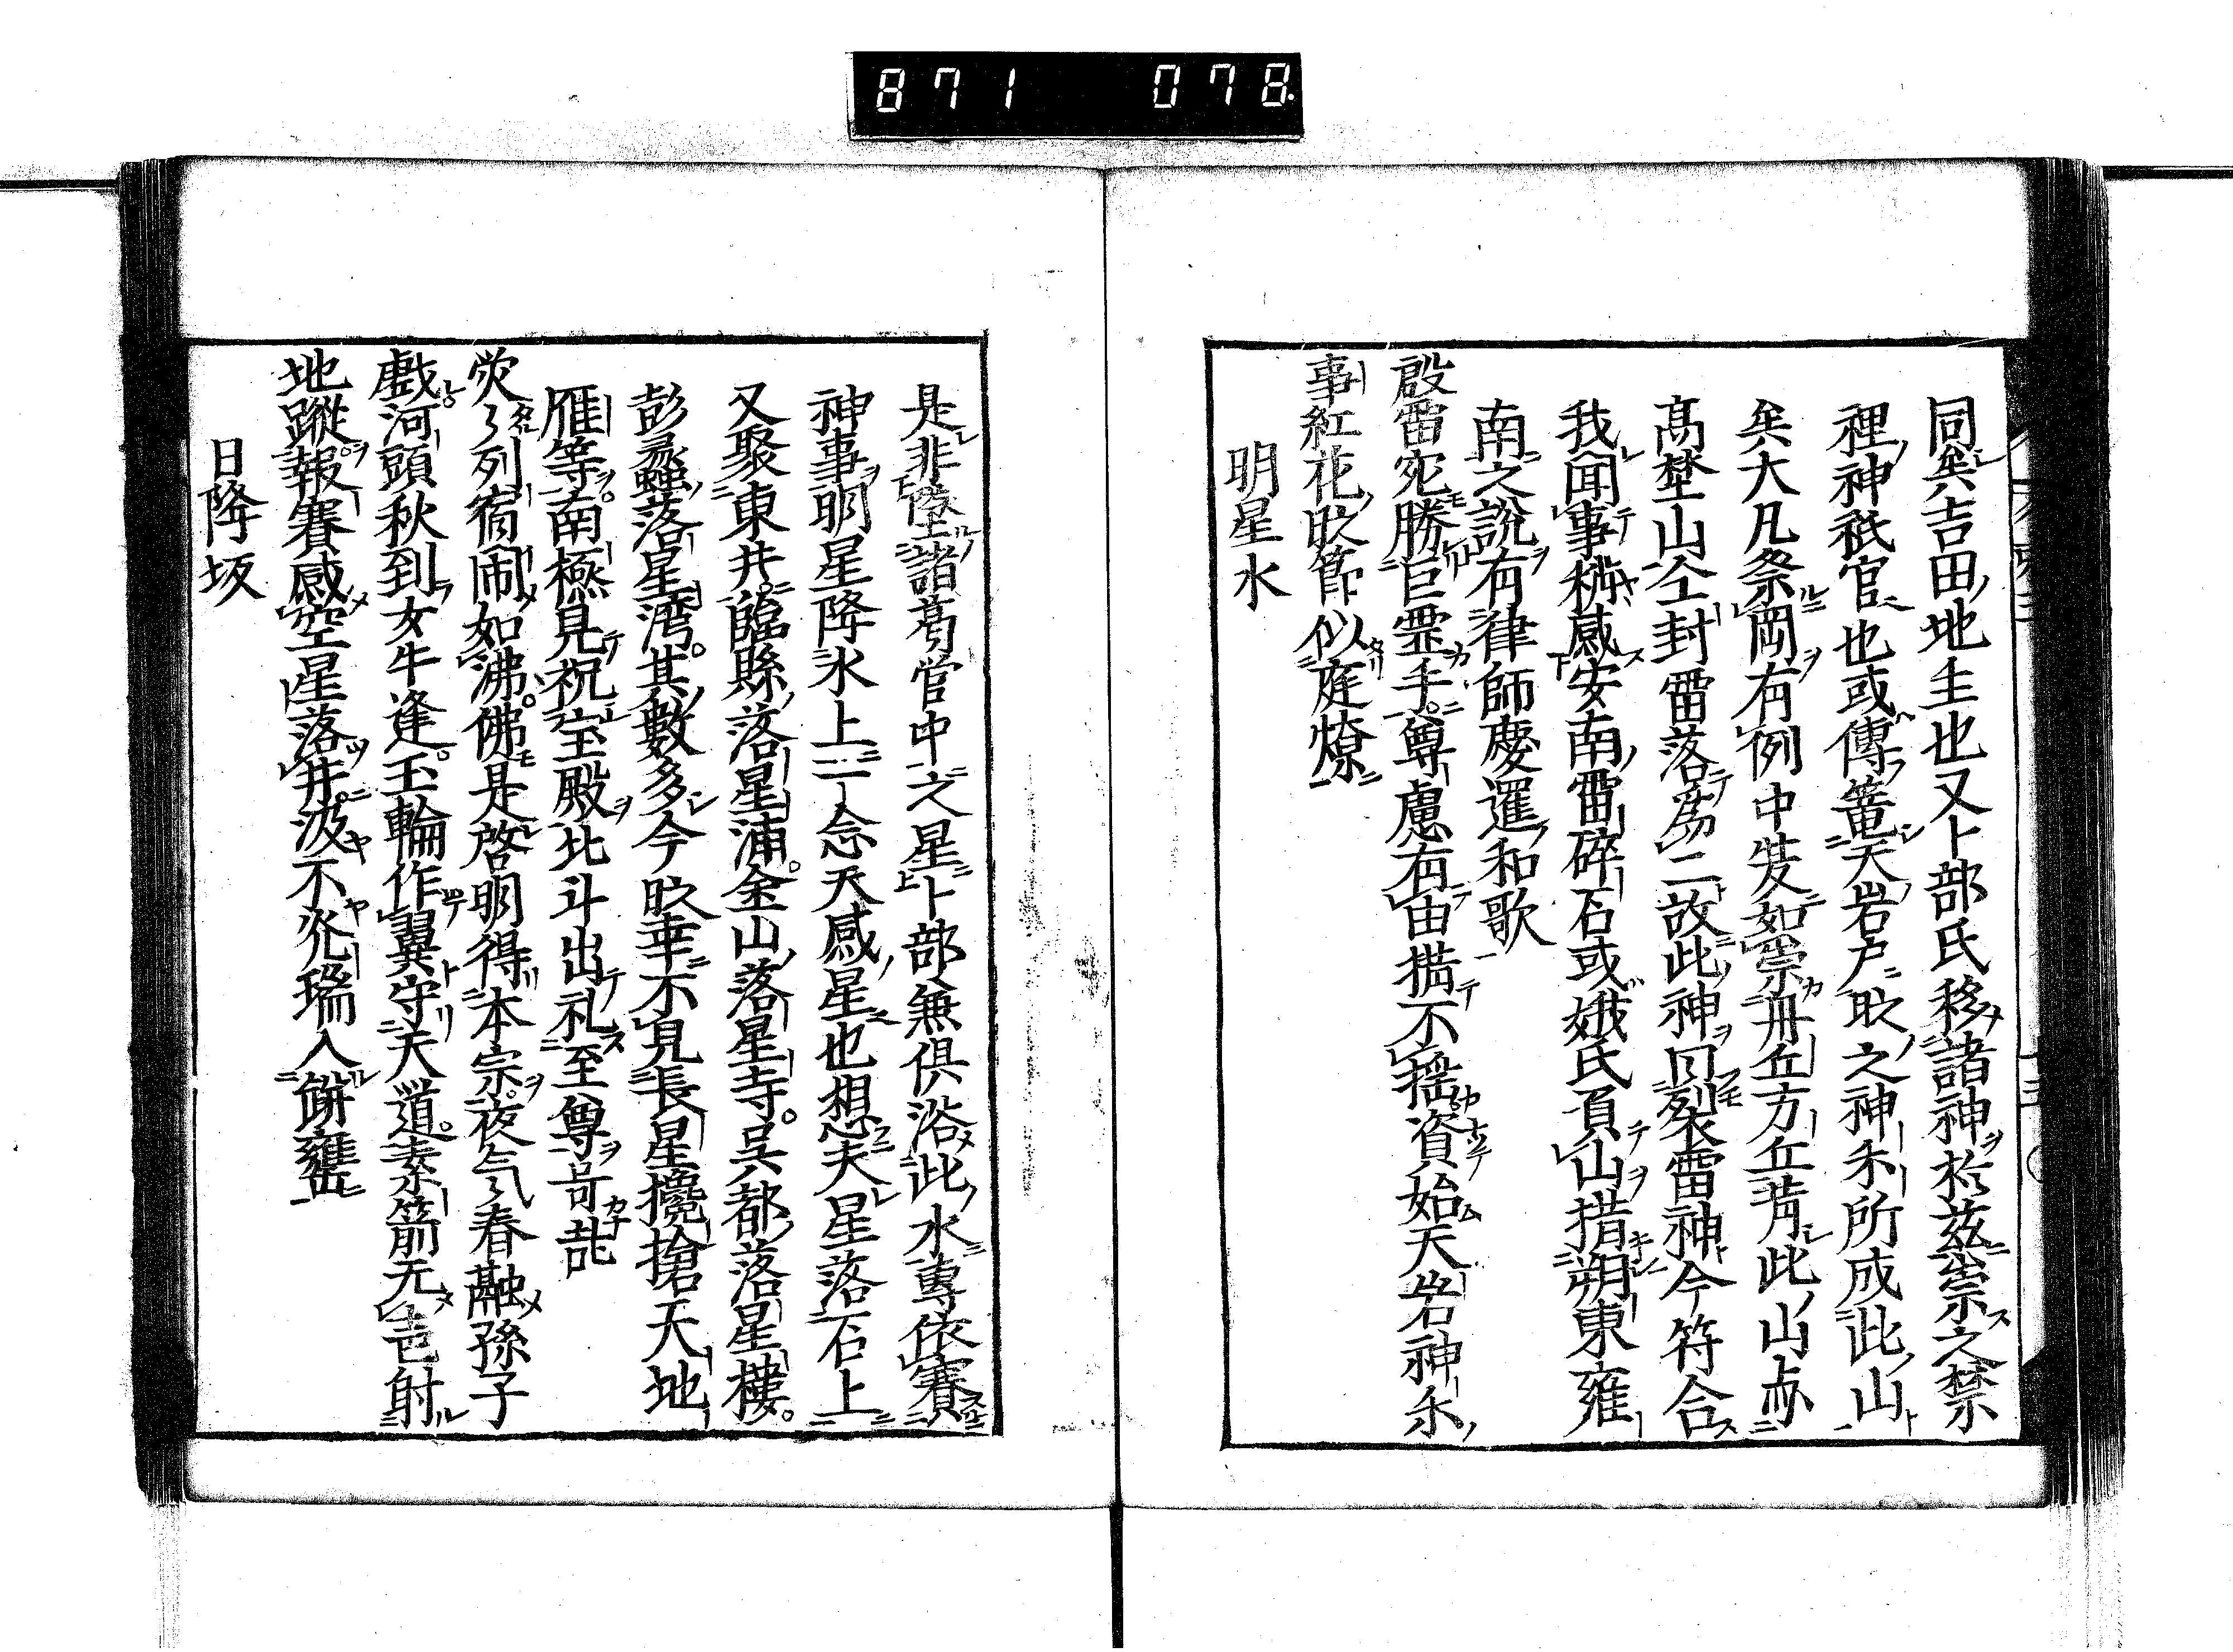 871 078.
同矣吉田地主也又卜部氏移諸神於茲崇之禁
裡神祇官也或傳篭天岩戸時之神乐所成此山
矣大凡祭岡有例中炎如崇舟丘方丘背此山亦
髙埜山仝封雷落為二故此神曰裂雷神今符合
我聞事㮣感安南雷碎石或娥氏負山措朔東雍
南之說有律師慶暹和歌
殷雷宛勝巨霊手尊慮有由措不揺資始天岩神乐
事紅花時節似庭燎
明星水
是非墜諸葛営中之星卜部無倶浴此水專依賽
神事明星降氷上一念天感星也想夫星落石上
又聚東井臨縣落星浦金山落星寺呉都落星樓
彭蠡落星湾其數多今時幸不見長星攙搶天地
雁等南極見祝宝殿北斗出礼至尊奇哉
熒々列宿閙如沸佛是啓明得本宗夜气春融孫子
戯河頭秋到女牛逢玉輪作翼守天道素箭无声射
地蹤報賽感空星落井汲不尽瑞入餅甕
日降坂